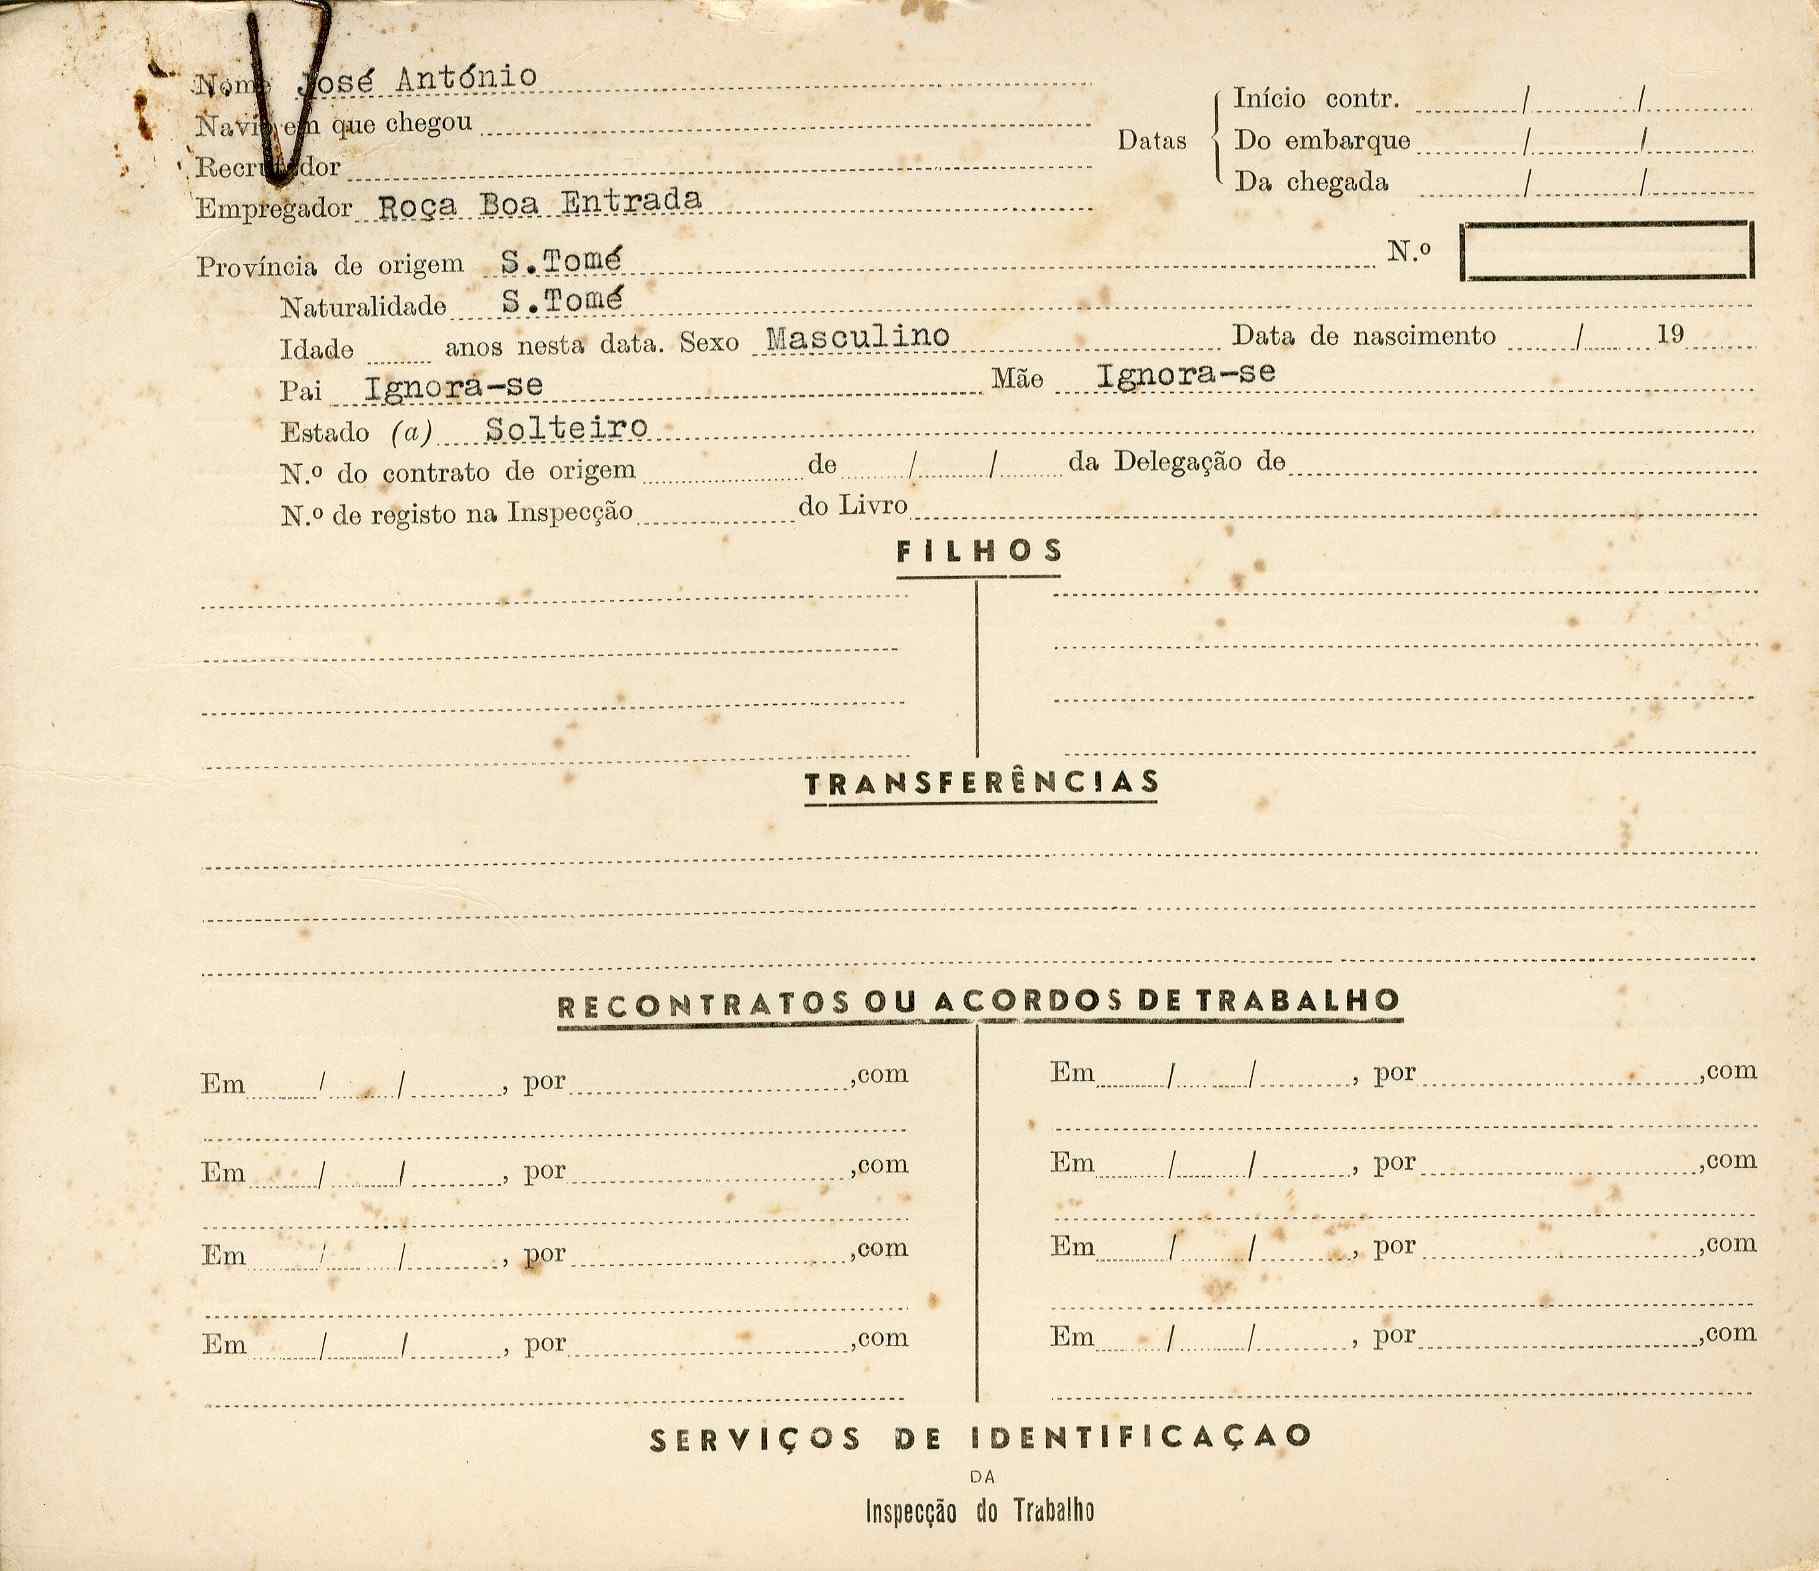 Nome José António
Navio em que chegou
Recrutador
Empregador Roça Boa Entrada
Datas
Início contr. / /
Do embarque / /
Da chegada / /
Província de origem S.Tomé N.º
Naturalidade S.Tomé
Idade anos nesta data. Sexo Masculino Data de nascimento / 19
Pai Ignora-se Mãe Ignora-se
Estado (a) Solteiro
N.º do contrato de origem de / / da Delegação de
N.º de registo na Inspecção do Livro
FILHOS
TRANSFERÊNCIAS
RECONTRATOS OU ACORDOS DE TRABALHO
Em / / , por ,com Em / / , por ,com
Em / / , por ,com Em / / , por ,com
Em / / , por ,com Em / / , por ,com
Em / / , por ,com Em / / , por ,com
SERVIÇOS DE IDENTIFICAÇAO
DA
Inspecção do Trabalho